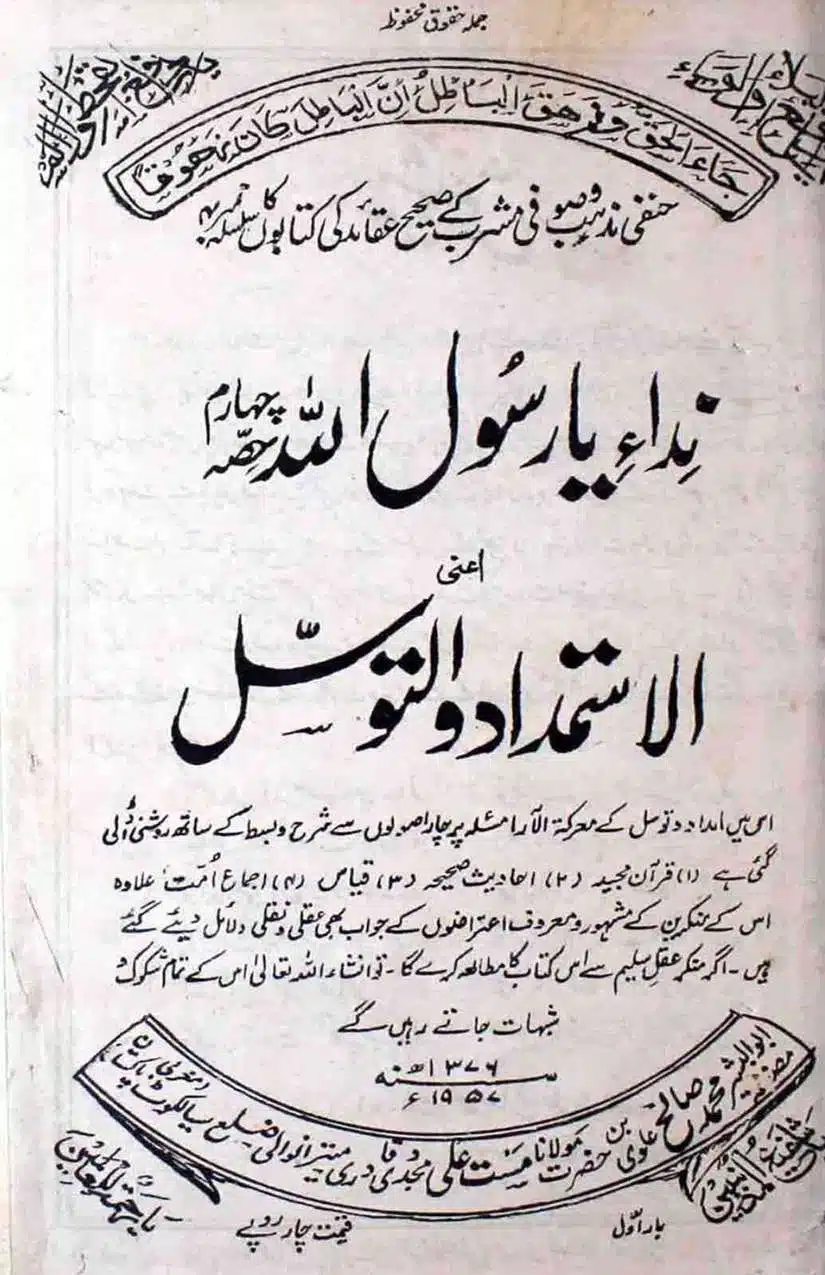 جملہ حقوق محفوظ
جَاءَ الحق وَزَهَقَ البَاطِلُ اِنَّ البَاطِلَ كَانَ زَهُوقًا
حنفی مذہب و صوفی مشرب کے صحیح عقائد کی کتابوں کا سلسلہ نمبر
نِداءِ یا رسُول اللہ حِصّہ چہارم
اعنی
الاستمداد و التوسّل
اس میں امداد و توسل کے معرکۃ الآرا مسئلہ پر چار اصولوں سے شرح و بسط کے ساتھ روشنی ڈالی
گئی ہے (۱) قرآن مجید (۲) احادیث صحیحہ (۳) قیاس (۴) اجماع اُمّت ۔ علاوہ
اس کے منکرین کے مشہور و معروف اعتراضوں کے جواب بھی عقلی و نقلی دلائل دیئے گئے
ہیں ۔ اگر منکر عقلِ سلیم سے اس کتاب کا مطالعہ کرے گا ۔ تو انشاء اللہ تعالیٰ اس کے تمام شکوک و
شبہات جاتے رہیں گے
سنہ ۱۳۷۶ھ
۱۹۵۷ء
مصنفہ ابوالبشیر محمد صالح علوی بن حضرت مولانا مست علی مجددی و قادری میترانوالی ضلع سیالکوٹ
بار اوّل
قیمت چار روپے